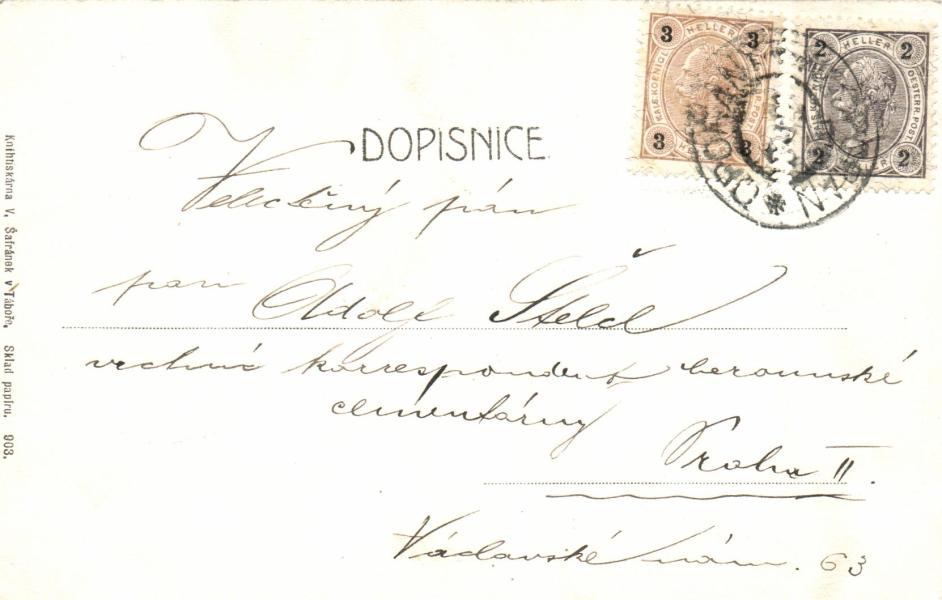 DOPISNICE
3 HELLER 3
KAIS. KOENIGL. OESTERR. POST
3 3
2 HELLER 2
KAIS. KOENIGL. OESTERR. POST
2 HELLER 2
Velectěný pán
pan Adolf Štelcl
vrchní korrespondent berounské
cementárny
Praha II.
Václavské nám. 63
Knihtiskárna V. Šafránek v Táboře. Sklad papíru. 903.